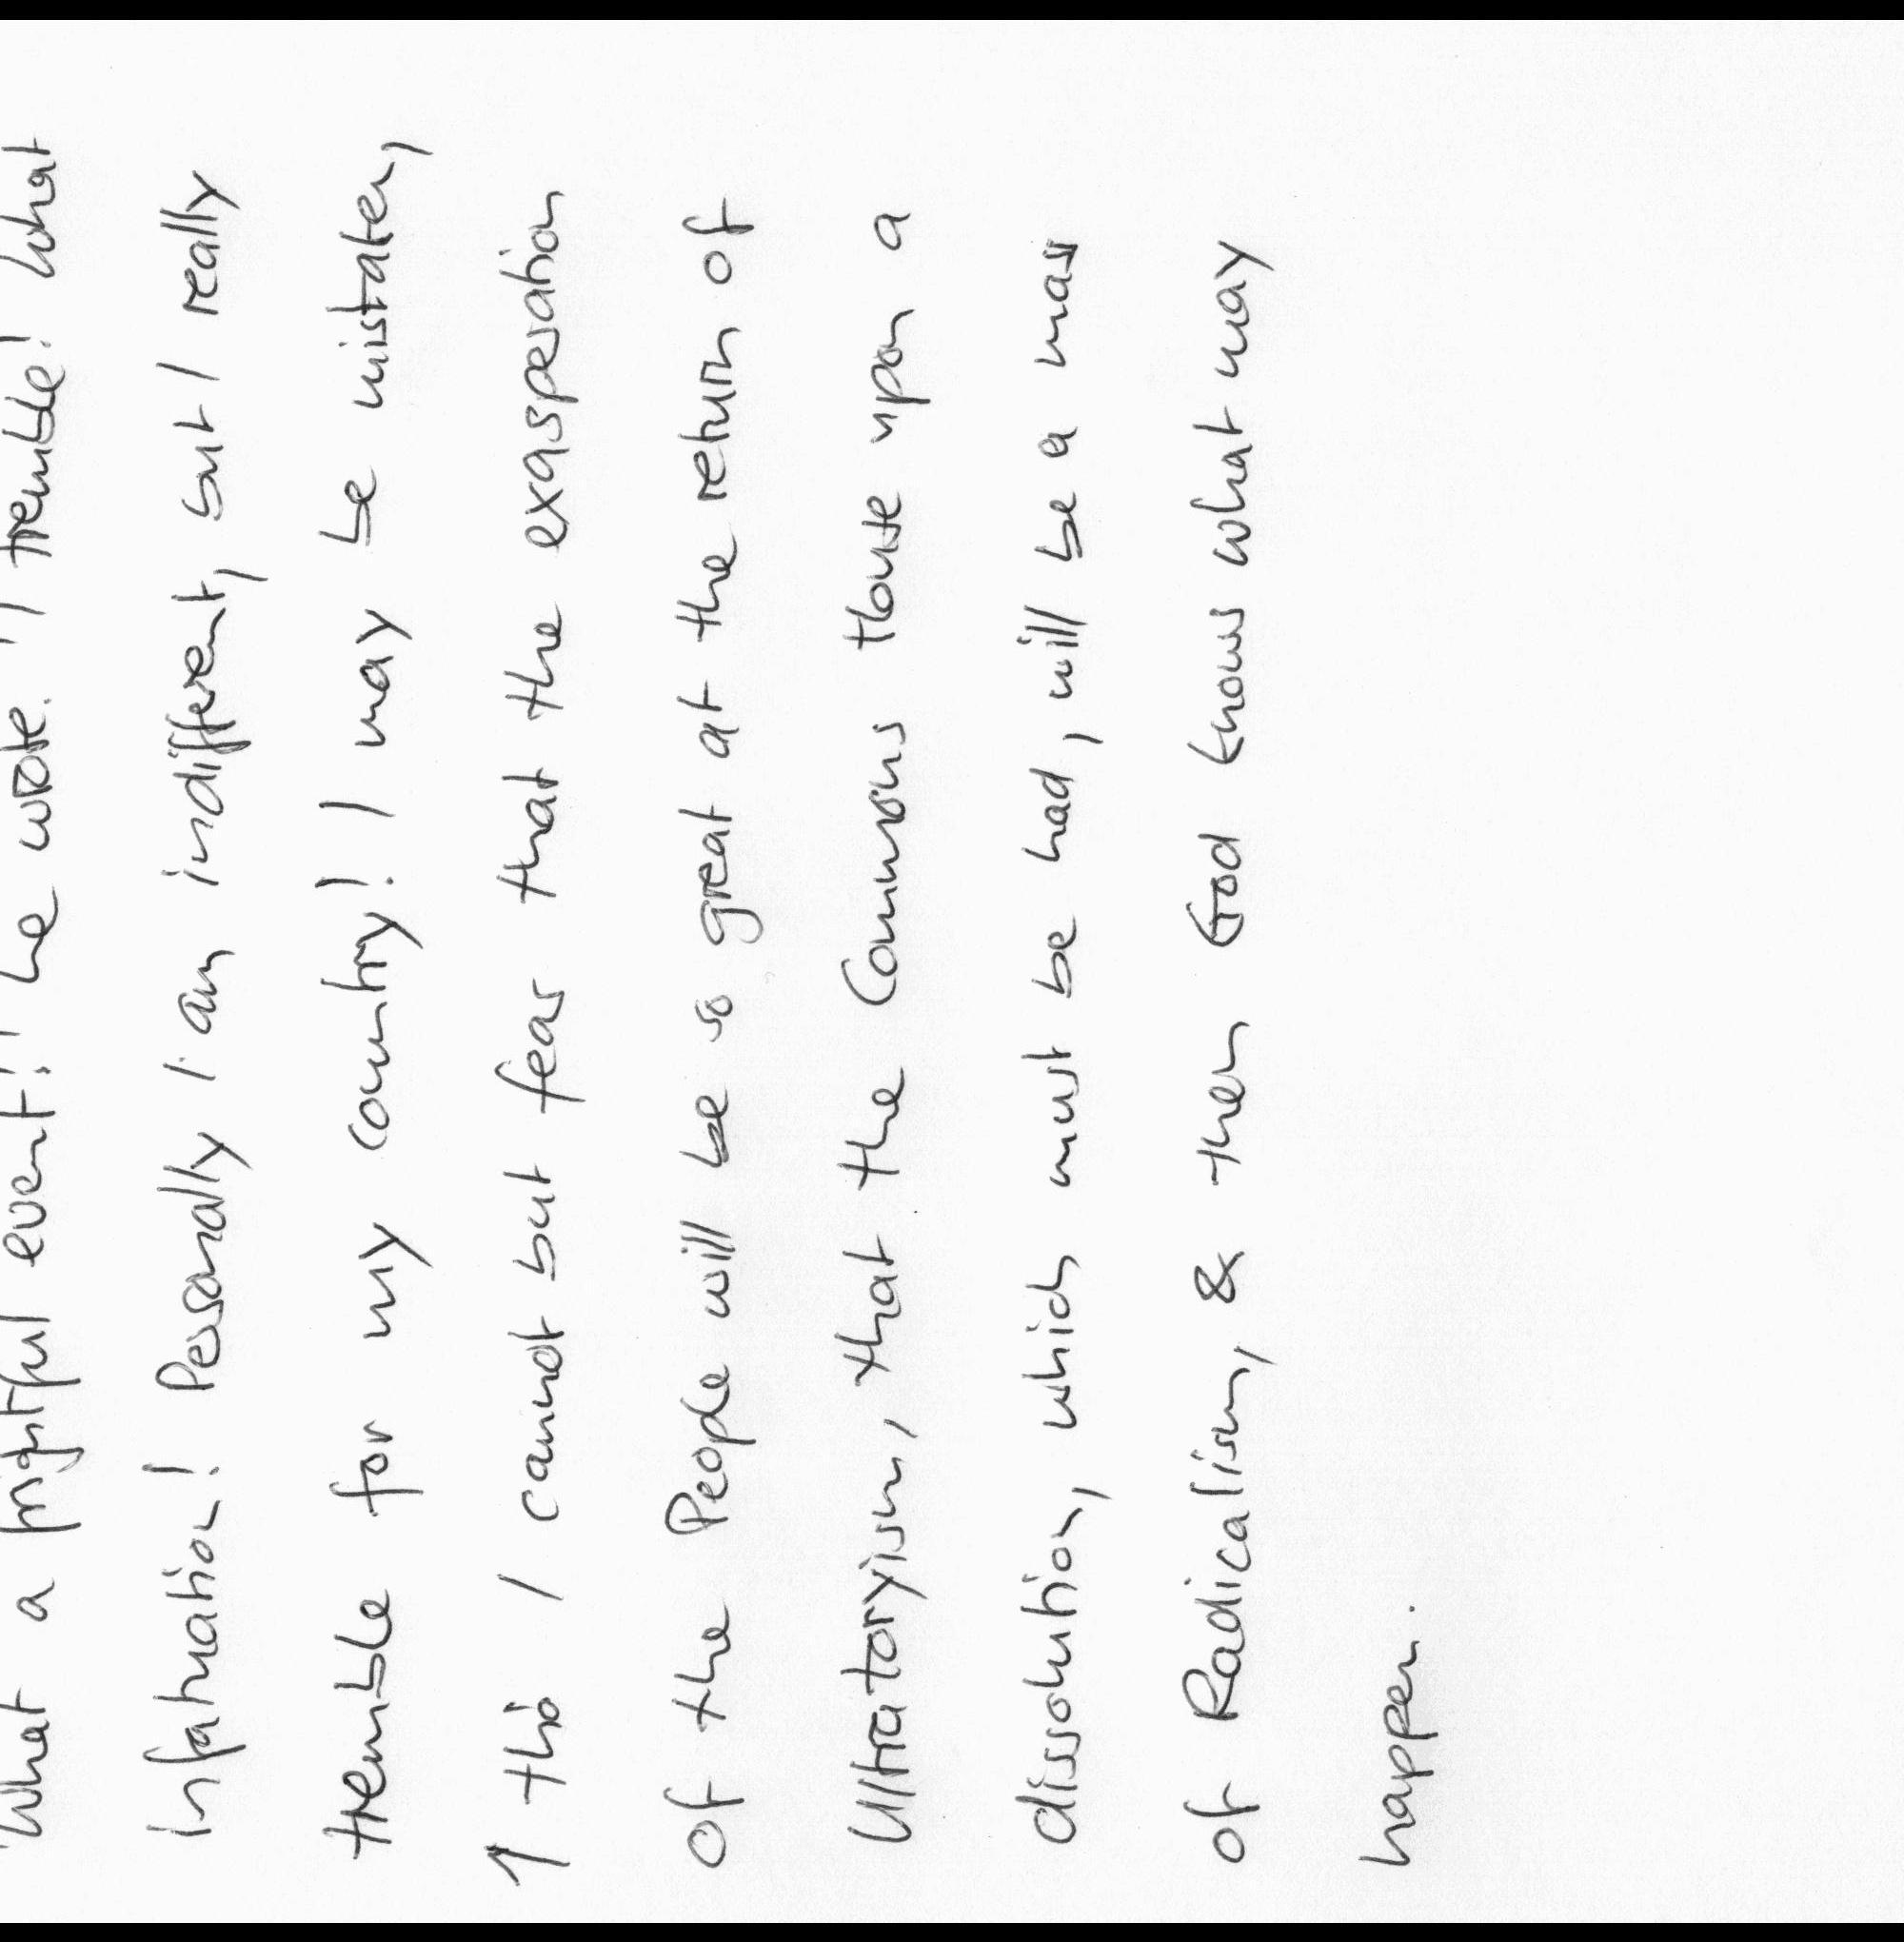 "What a frightful event!" he wrote. "I tremble! What
infatuation! Personally I am indifferent, but I really
tremble for my country! I may be mistaken,
1 this I cannot but fear that the exasperation
of the People will be so great at the return of
Ultratoryism, that the Commons House upon a
dissolution, which must be had, will be a mass
of Radicalism, & then God knows what may
happen.